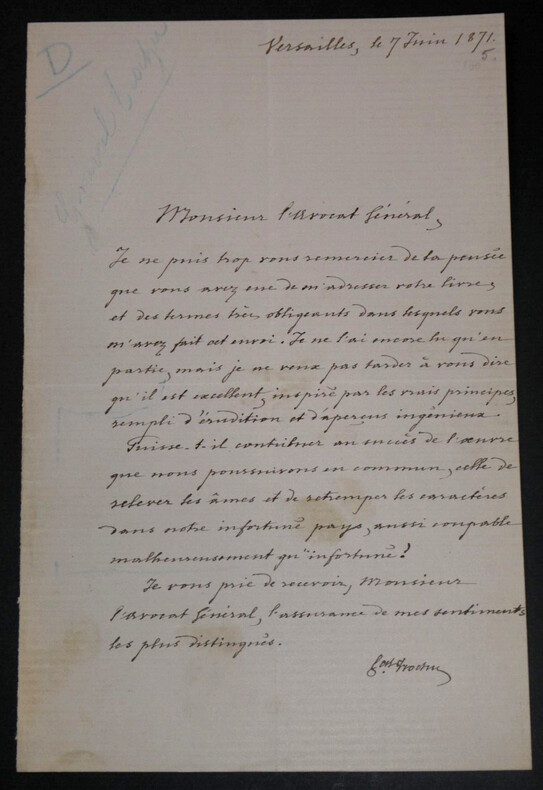 D
Général
Versailles, le 7 Juin 1871.
5.
Monsieur l'Avocat Général,
Je ne puis trop vous remercier de la pensée
que vous avez eue de m'adresser votre livre,
et des termes très obligeants dans lesquels vous
m'avez fait cet envoi. Je ne l'ai encore lu qu'en
partie, mais je ne veux pas tarder à vous dire
qu'il est excellent, inspiré par les vrais principes,
rempli d'érudition et d'aperçus ingénieux.
Puisse-t-il contribuer au succès de l'œuvre
que nous poursuivons en commun, celle de
relever les âmes et de retremper les caractères
dans notre infortuné pays, aussi coupable
malheureusement qu'infortuné!
Je vous prie de recevoir, Monsieur
l'Avocat Général, l'assurance de mes sentiments
les plus distingués.
Gal Trochu